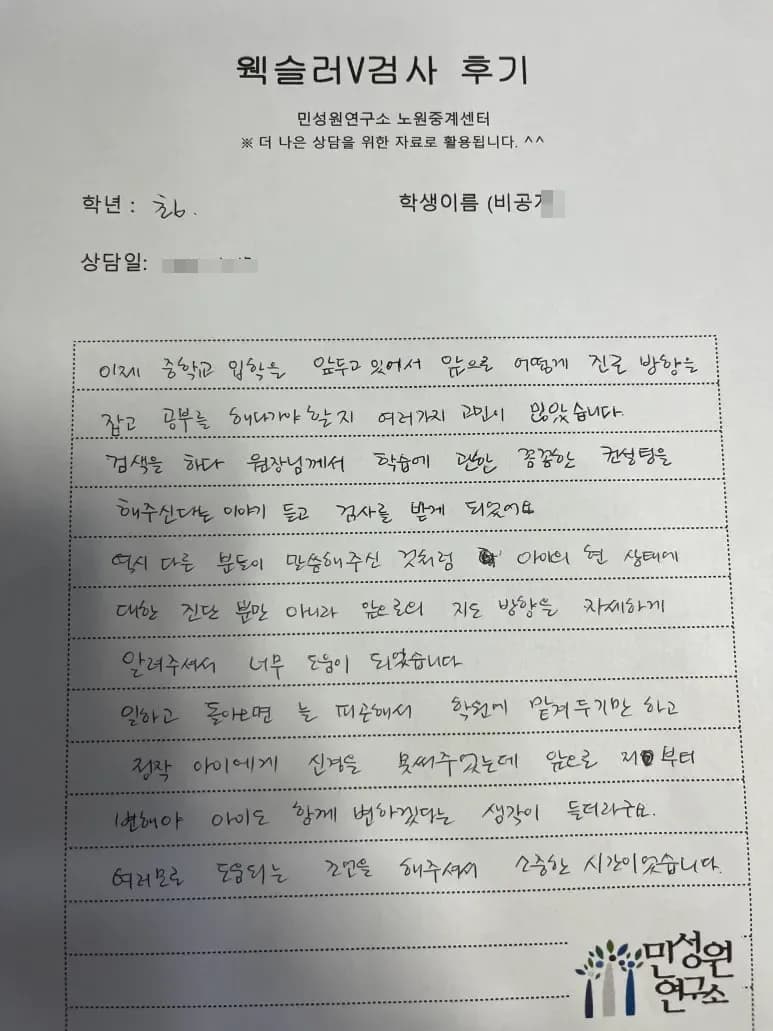 웩슬러V검사 후기
민성원연구소 노원중계센터
※ 더 나은 상담을 위한 자료로 활용됩니다. ^^
학년 : 초6. 학생이름 (비공개
상담일:
이제 중학교 입학을 앞두고 있어서 앞으로 어떻게 진로 방향을
잡고 공부를 해나가야 할지 여러가지 고민이 많았습니다.
검색을 하다 원장님께서 학습에 관한 꼼꼼한 컨설팅을
해주신다는 이야기 듣고 검사를 받게 되었어요
역시 다른 분들이 말씀해주신 것처럼 아이의 현 상태에
대한 진단 뿐만 아니라 앞으로의 지도 방향을 자세하게
알려주셔서 너무 도움이 되었습니다
일하고 돌아오면 늘 피곤해서 학원에 맡겨두기만 하고
정작 아이에게 신경을 못써주었는데 앞으로 저부터
변해야 아이도 함께 변하겠다는 생각이 들더라구요.
여러모로 도움되는 조언을 해주셔서 소중한 시간이었습니다.
민성원
연구소